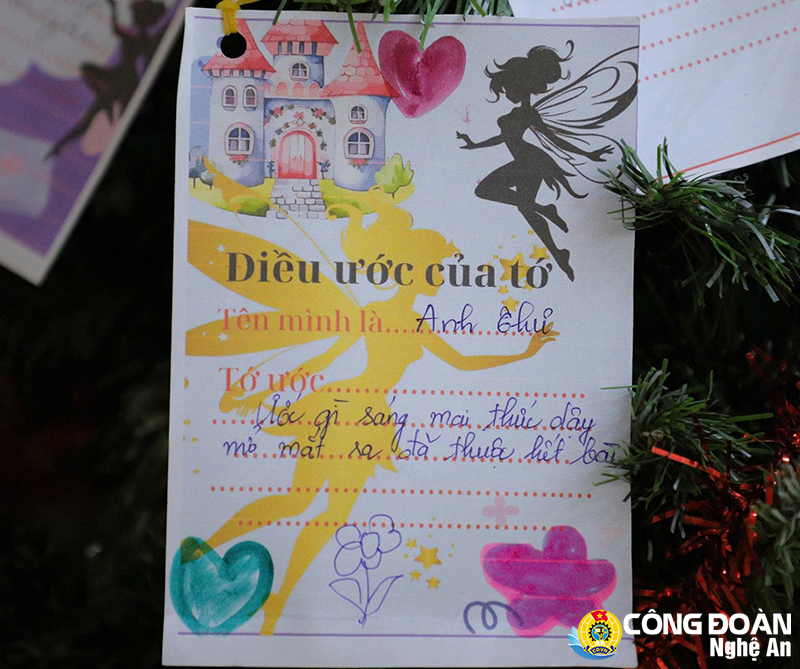 Điều ước của tớ
Tên mình là.... Anh Thư
Tớ ước....
Ước gì sáng mai thức dậy
mở mắt ra đã thuộc hết bài
CÔNG ĐOÀN
Nghệ An